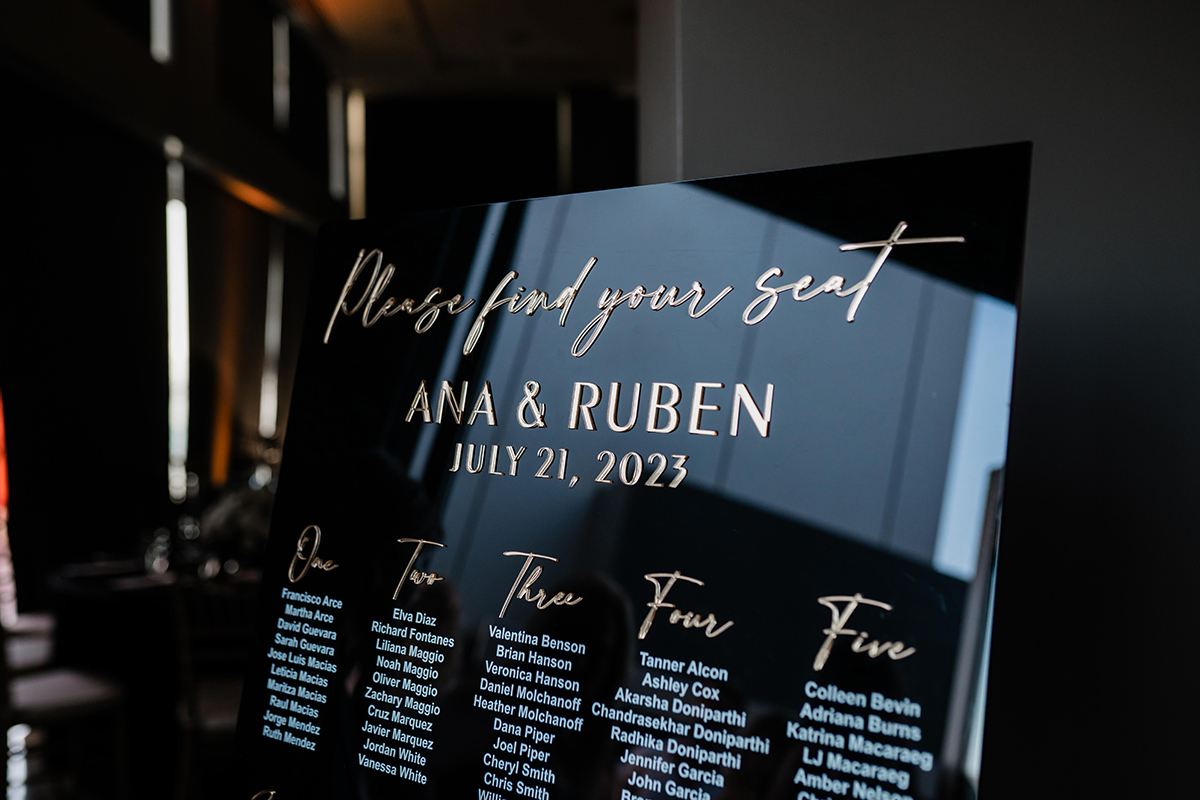 Please find your seat
ANA & RUBEN
JULY 21, 2023
One
Francisco Arce
Martha Arce
David Guevara
Sarah Guevara
Jose Luis Macias
Leticia Macias
Maritza Macias
Raul Macias
Jorge Mendez
Ruth Mendez
Two
Elva Diaz
Richard Fontanes
Liliana Maggio
Noah Maggio
Oliver Maggio
Zachary Maggio
Cruz Marquez
Javier Marquez
Jordan White
Vanessa White
Three
Valentina Benson
Brian Hanson
Veronica Hanson
Daniel Molchanoff
Heather Molchanoff
Dana Piper
Joel Piper
Cheryl Smith
Chris Smith
Four
Tanner Alcon
Ashley Cox
Akarsha Doniparthi
Chandrasekhar Doniparthi
Radhika Doniparthi
Jennifer Garcia
John Garcia
Five
Colleen Bevin
Adriana Burns
Katrina Macaraeg
LJ Macaraeg
Amber Nelson